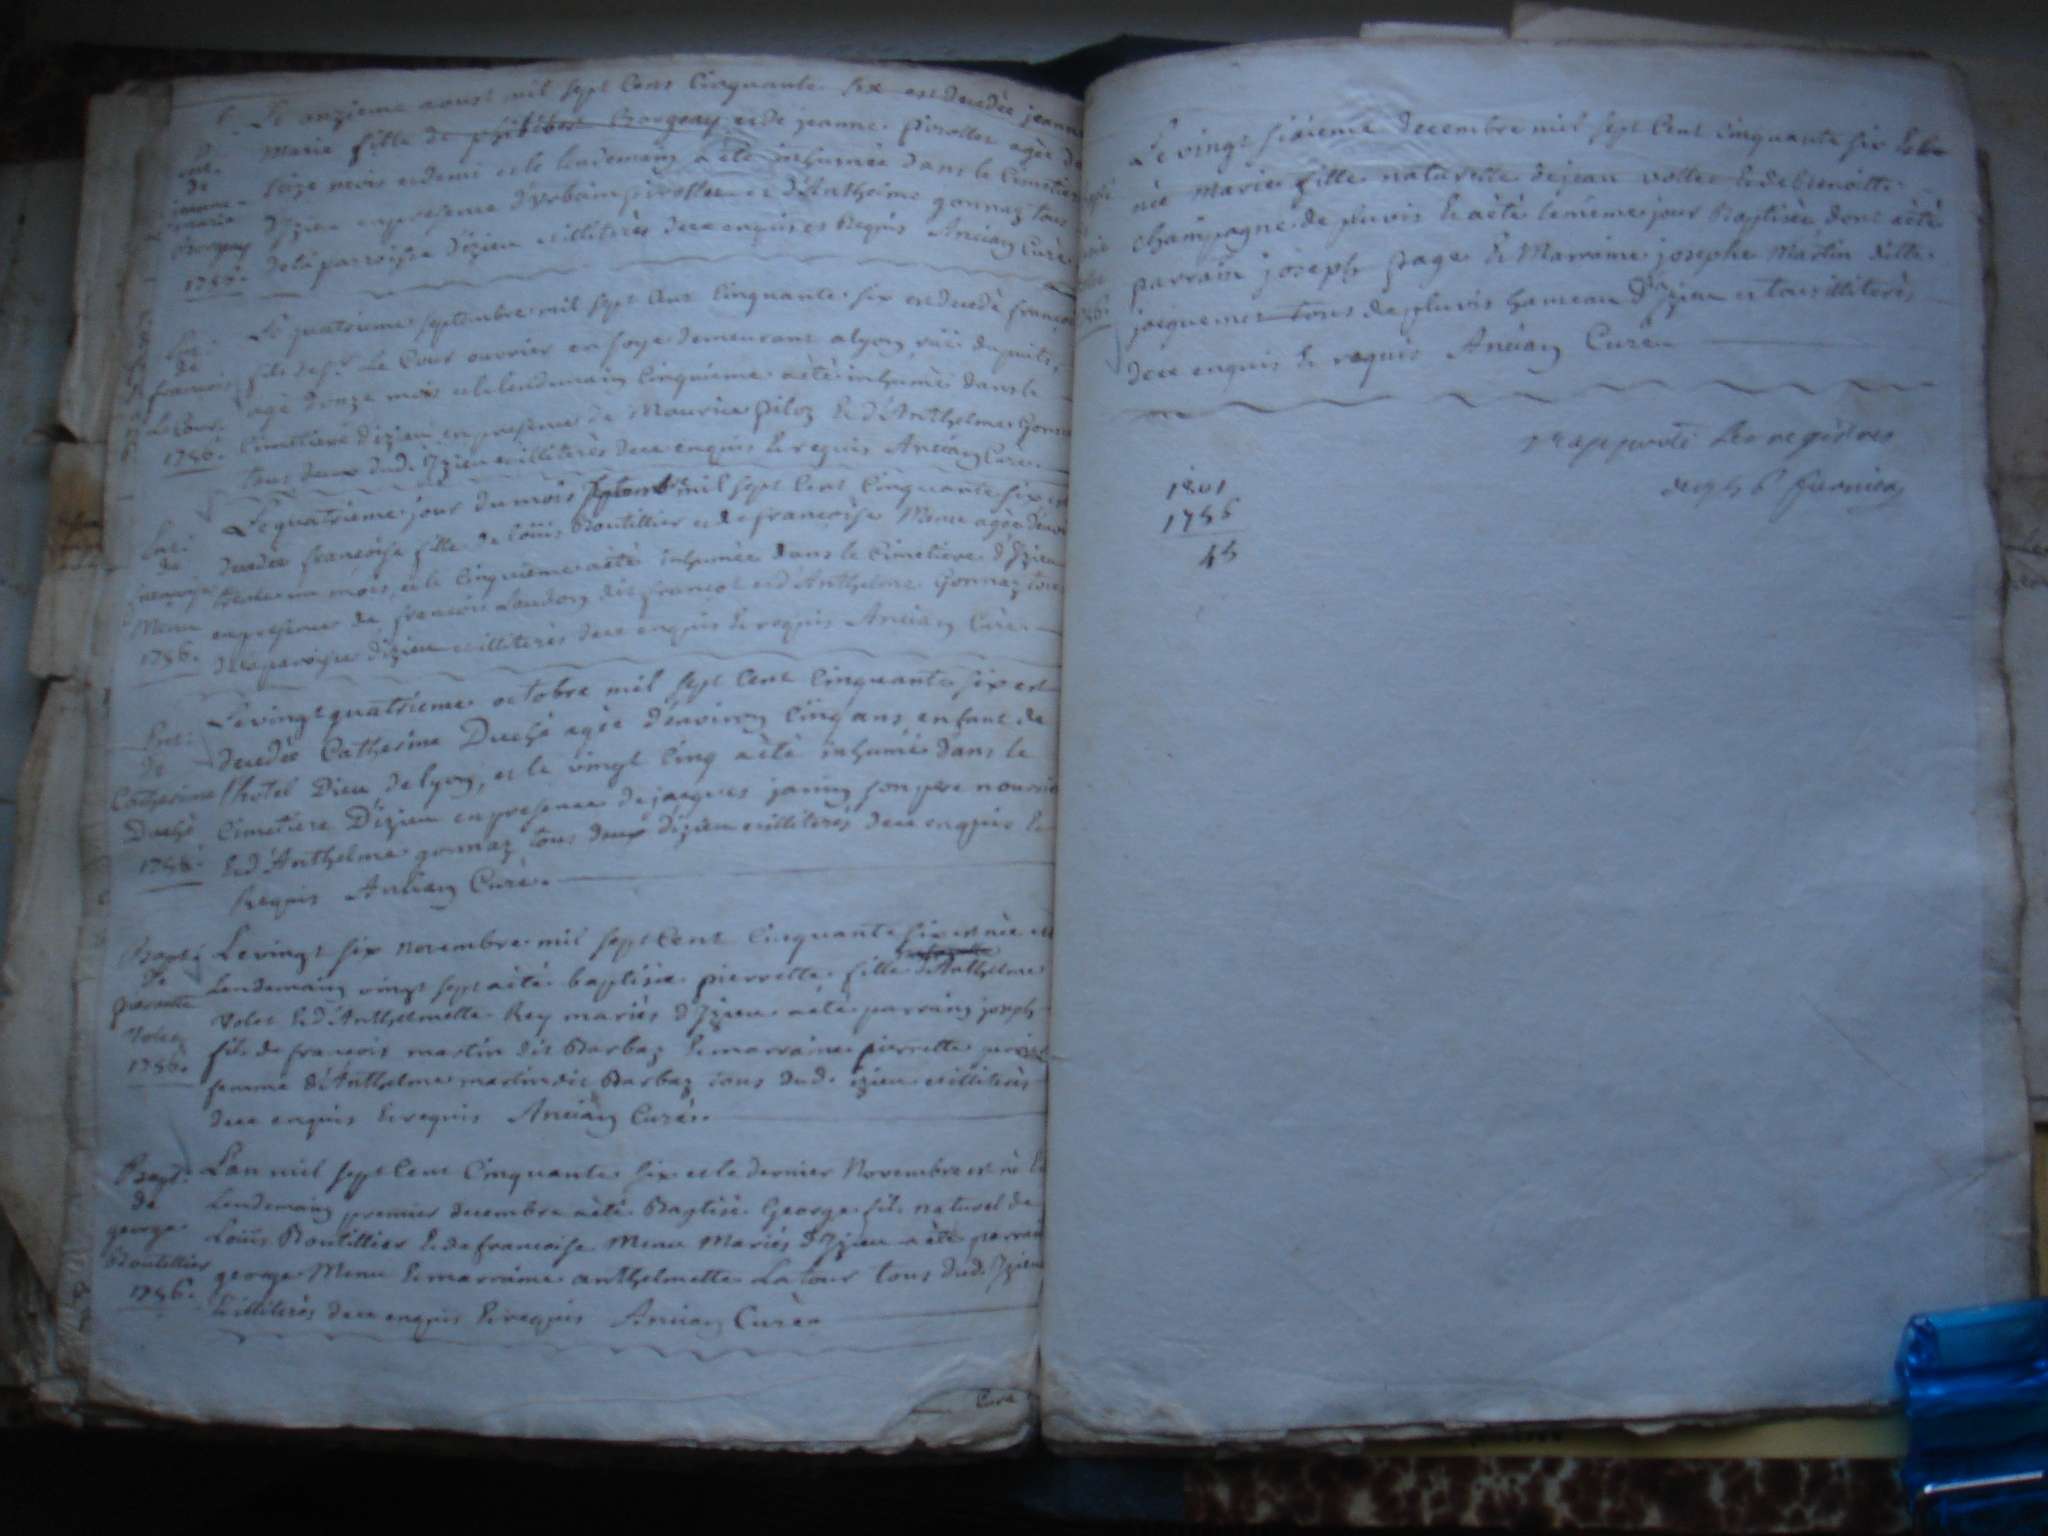 Le onzieme aoust mil sept Cens Cinquante six est decedée jeanne
Marie fille de philibert Borgney et de jeanne pirollet agée de
seize mois et demi et le lendemain a été inhumée dans le Cimetiere
d'Izieu en presence d'Urbain pirollet et d'Anthelme gonnaz tous
de la parroisse d'izieu et illiterés de ce enquis et Requis Ancian Curé
de
jeanne
marie
Borgney
1756.
Le quatrieme septembre mil sept Cens Cinquante six est decedé françois
fils de sr. Le Cour ouvrier en soye demeurant a lyon rüe du puits,
agé d'onze mois et le lendemain Cinquieme a été inhumé dans le
Cimetiere d'izieu en presence de Maurice piloz & d'Anthelme Gonnaz
tous deux dud. Izieu et illiterés de ce enquis & requis Ancian Curé.
de
francois
Le Cour.
1756.
Le quatrieme jour du mois septembre mil sept Cens Cinquante six est
decedée françoise fille de Loüis Boutillier et de francoise Menu agée
un mois, et le Cinquieme a été inhumée dans le Cimetiere d'Izieu
en presence de francois Loudon dit francot et d'Anthelme Gonnaz tous
de la paroisse d'izieu et illiterés de ce enquis & requis Ancian Curé
de
françoise
Menu
1756.
Le vingt quatrieme octobre mil sept Cens Cinquante six est
decedée Catherine Duché agée d'environ Cinq ans, enfant de
l'hotel Dieu de lyon, et le vingt Cinq a été inhumée dans le
Cimetiere D'izieu en presence de jacques janin son pere nourricier
& d'Anthelme gonnaz tous deux d'izieu et illiterés de ce enquis &
Requis Ancian Curé.
de
Catherine
Duché
1756.
Le vingt six Novembre mil sept Cens Cinquante six est née et
Lendemain vingt sept a été baptisée pierrette fille d'Anthelme
Volet & d'Anthelmette Rey mariés d'Izieu a été parrain joseph
fils de francois martin dit Barbaz & marraine pierrette
femme d'Anthelme martin dit Barbaz tous dud. izieu et illiterés
de ce enquis & requis Ancian Curé.
Bapt:
de
pierrette
Volet
1756.
L'an mil sept Cens Cinquante six et le dernier Novembre est né &
Lendemain premier decembre a été Baptisé George fils naturel de
Loüis Boutillier & de francoise Menu Mariés d'Izieu a été parrain
george Menu & marraine anthelmette Latour tous dud. Izieu
& illiterés de ce enquis & requis Ancian Curé
Bapt:
de
george
Boutillier
1756.
Le vingt sixieme decembre mil sept Cens cinquante six est
née Marie fille naturelle de jean vollet & de benoitte
champagne de pluvis & a été le même jour Baptisée dont a été
parrain joseph page & Marraine josephe Martin ditte
jacquemet tous de pluvis hameau d'Izieu et tous illiterés
de ce enquis & requis Ancian Curé
rapporté les registres
1801
1756
45